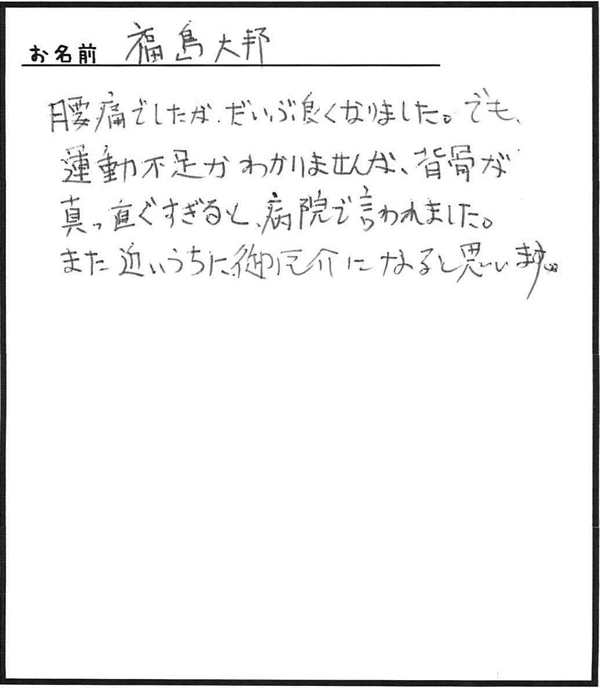 お名前 福島大邦
腰痛でしたが、だいぶ良くなりました。でも、
運動不足かわかりませんが、背骨が
真っ直ぐすぎると、病院で言われました。
また近いうちに御厄介になると思います。